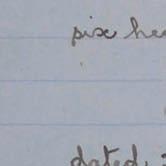 pix hea
dated